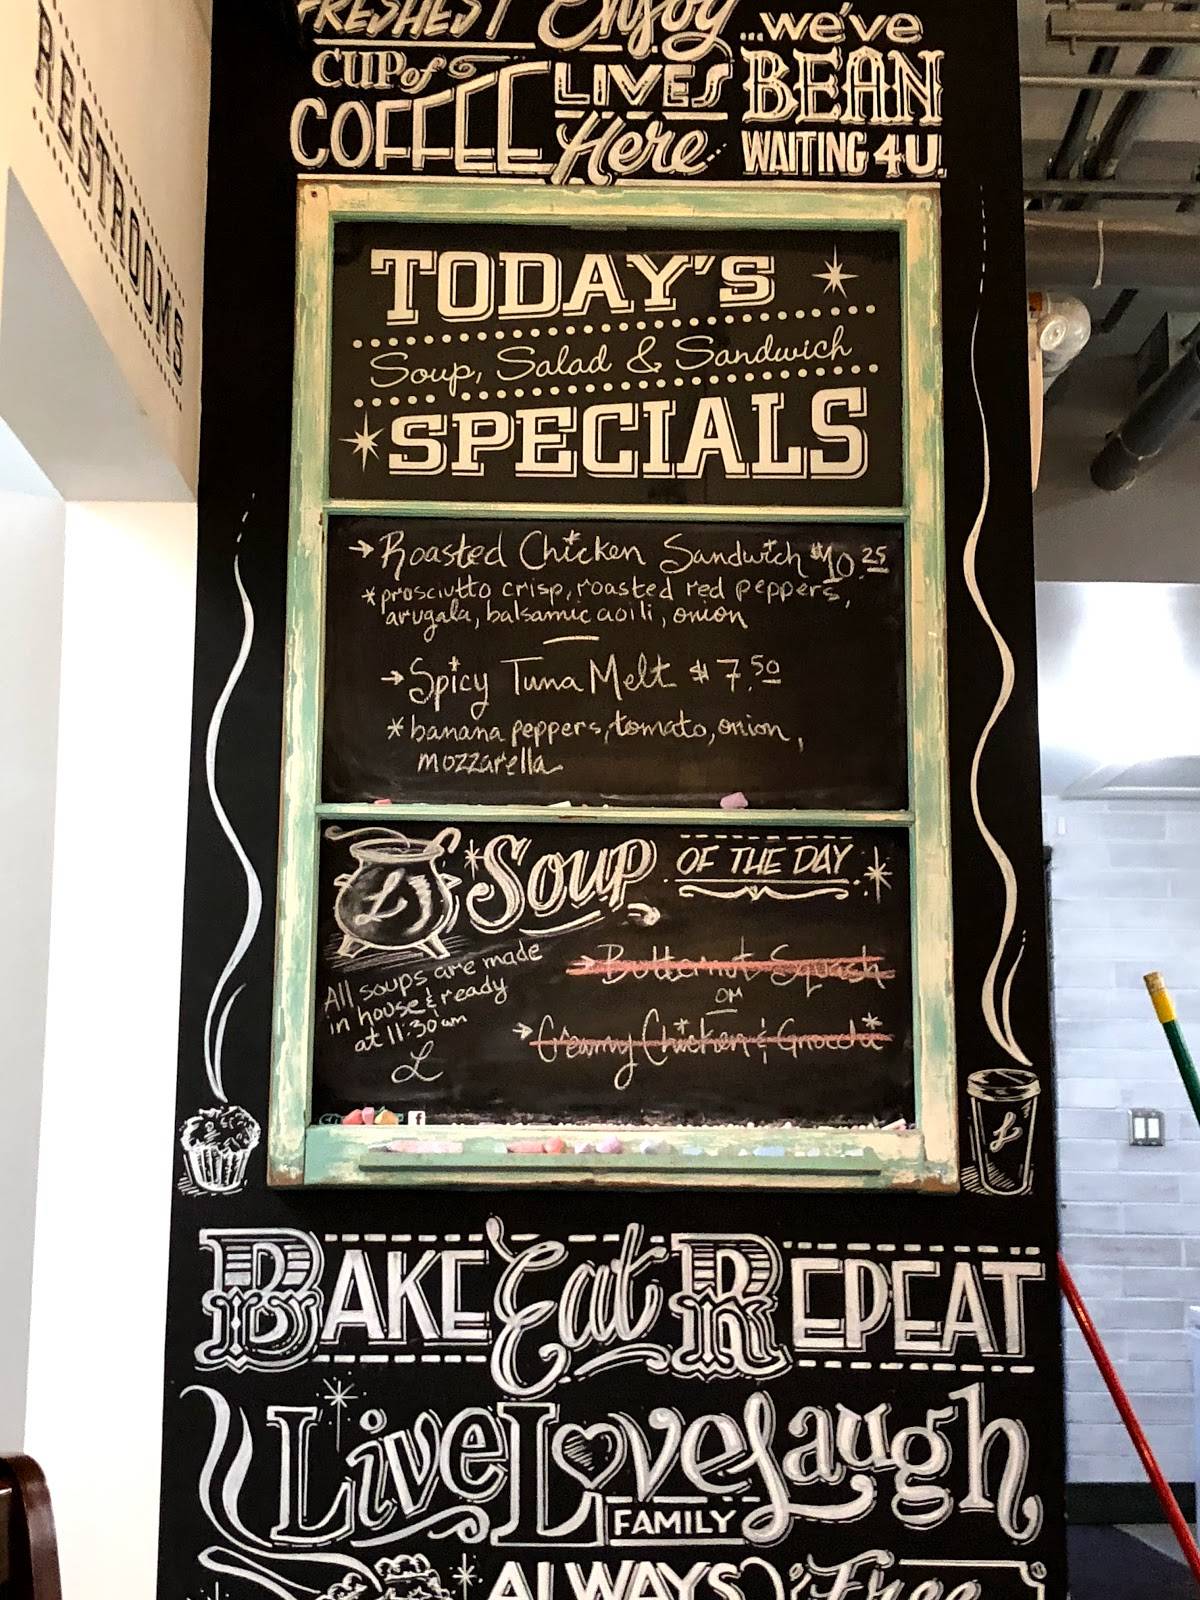 RESTROOMS
FRESHEST
CUP of
COFFEE
Enjoy
LIVES
Here
...we've
BEAN
WAITING 4U.
TODAY'S
Soup, Salad & Sandwich
SPECIALS
→ Roasted Chicken Sandwich $10.25
* prosciutto crisp, roasted red peppers,
arugala, balsamic aoili, onion
→ Spicy Tuna Melt $7.50
* banana peppers, tomato, onion,
mozzarella
SOUP OF THE DAY
All soups are made
in house & ready
at 11:30 am
L
→ Butternut Squash
OR
→ Creamy Chicken & Gnocchi
BAKE Eat REPEAT
Live Love Laugh
FAMILY
ALWAYS Free